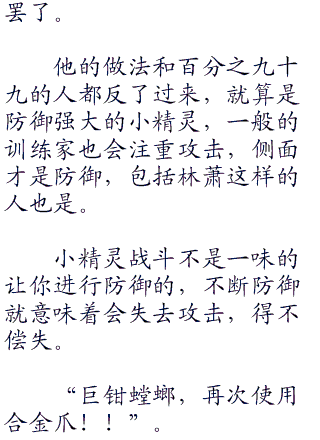 罢了。
他的做法和百分之九十
九的人都反了过来，就算是
防御强大的小精灵，一般的
训练家也会注重攻击，侧面
才是防御，包括林萧这样的
人也是。
小精灵战斗不是一味的
让你进行防御的，不断防御
就意味着会失去攻击，得不
偿失。
“巨钳螳螂，再次使用
合金爪！！”。